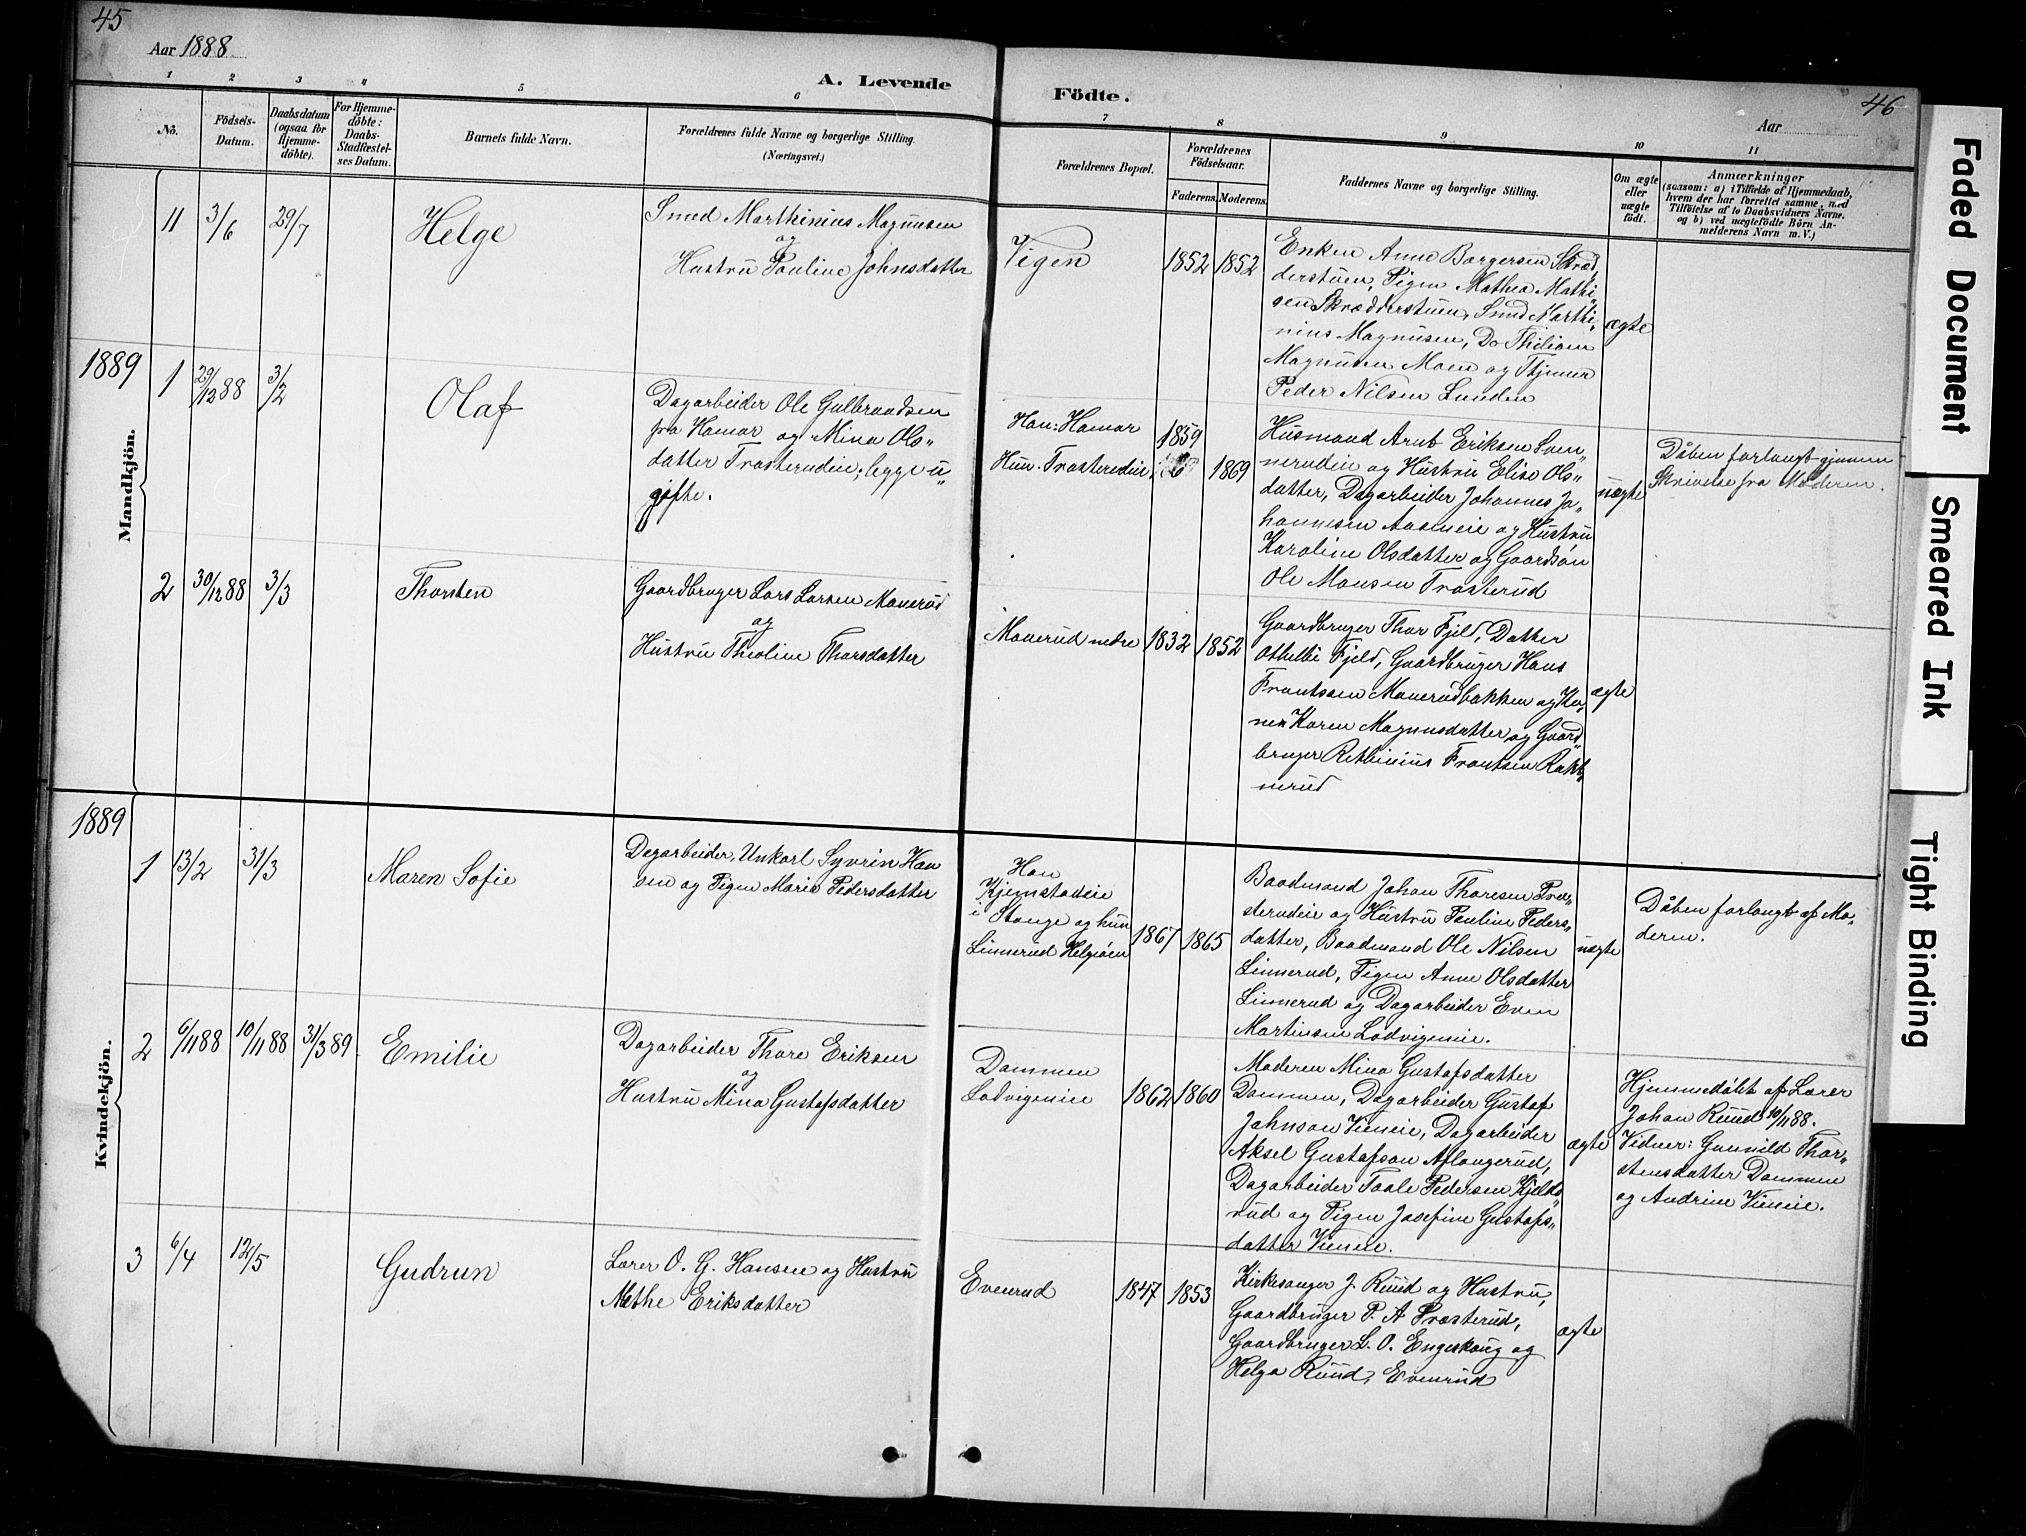 45
Aar 1888
A. Levende
Födte.
Aar
46
1 2 3 4 5 6 7 8 9 10 11
Nö.
Födsels-
Datum.
Daabsdatum
(ogsaa for
Hjemme-
döbte).
For Hjemme-
döbte:
Daabs-
Stadfæstel-
ses Datum.
Barnets fulde Navn.
Forældrenes fulde Navne og borgerlige Stilling.
(Næringsvei.)
Forældrenes Bopæl.
Forældrenes
Födselsaar.
Faderens. Moderens.
Faddernes Navne og borgerlige Stilling.
Om ægte
eller
uægte
födt.
Anmærkninger
(saasom: a) i Tilfælde af Hjemmedaab,
hvem der har forrettet samme, med
Tilföielse af to Daabsvidners Navne.
og b) ved uægtefödte Börn An-
melderens Navn m. V.)
11 3/6 29/7
Helge
Smed Marthinius Magnusen
og
Hustru Pauline Johnsdatter
Vigen
1852 1852
Enken Anne Borgersen Skræd,
derstuen, Pigen Mathea Mathi,
sen Skrædderstuen, Smed Marthi,
nius Magnusen, Do
Magnusen Moen og
Peder Nilsen Lunden
ægte
1889
Mandkjön.
1 29/12 88 3/2
Olaf
Dagarbeider Ole Gulbrandsen
fra Hamar og Mina Ols„
datter Trosterudeie, begge u„
gifte.
Han: Hamar
Hun: Trosterudeie,
1859
1869
Husmand Arnt Eriksen Sven„
nerudeie og Hustru Elise Ols„
datter, Dagarbeider Johannes Jo„
hannesen Aasmeie og Hustru
Karoline Olsdatter og Gaardsøn
Ole Monsen Trosterud
uægte
Dåben forlangt gjennem
Skrivelse fra Moderen.
2 30/12 88 3/3
Thorsten
Gaardbruger Lars Larsen Manerud
og
Hustru Theoline Thorsdatter
Manerud nedre
1832 1852
Gaardbruger Thor Fjeld, Datter
Othellie Fjeld, Gaardbruger Hans
Frantsen Manerudbakken og Ko„
nen Karen Magnusdatter og Gaard„
bruger Frantsen
nerud
ægte
1889
Kvindekjön.
1 13/2 31/3
Maren Sofie
Dagarbeider, Unkarl Syvrin Han
sen og Pigen Marie Pedersdatter
Han
Kjemstadeie
i Stange og hun
Linnerud Helgøen
1867 1865
Baadmand Johan Thoresen Pres„
sterudeie og Hustru Pauline Peders„
datter, Baadmand Ole Nilsen
Linnerud, Pigen Anne Olsdatter
Linnerud og Dagarbeider Even
Martinsen Lodvigeneie.
uægte
Dåben forlangt af Mo„
deren.
2 6/11 88 10/11 88 31/3 89
Emilie
Dagarbeider Thore Eriksen
og
Hustru Mina Gustafsdatter
Dammen
Lodvigeneie
1862 1860
Moderen Mina Gustafsdatter
Dammen, Dagarbeider Gustaf
Johnson Vieneie, Dagarbeider
Aksel Gustafson Aflangerud,
Dagarbeider Taale Pedersen Kjelds„
rud og Pigen Josefine Gustafs„
datter Vieneie.
ægte
Hjemmedøbt af Lærer
Johan Ruud 10/11 88.
Vidner: Gunnild Thor„
stensdatter Dammen
og Andrine Vieneie.
3 6/4 12/5
Gudrun
Lærer O. G. Hansen og Hustru
Mathe Eriksdatter
Evenrud
1847 1853
Kirkesanger J. Ruud og Hustru,
Gaardbruger P. A. Præsterud,
Gaardbruger L. O. Engeskaug og
Helga Ruud, Evenrud
ægte
Faded Document
Smeared Ink
Tight Binding